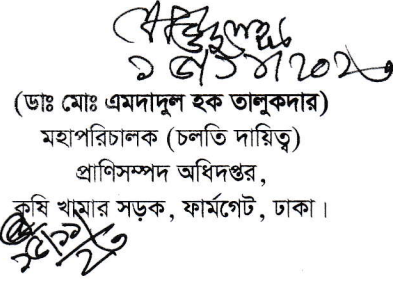 (ডাঃ মোঃ এমদাদুল হক তালুকদার)
মহাপরিচালক (চলতি দায়িত্ব)
প্রাণিসম্পদ অধিদপ্তর,
কৃষি খামার সড়ক, ফার্মগেট, ঢাকা।